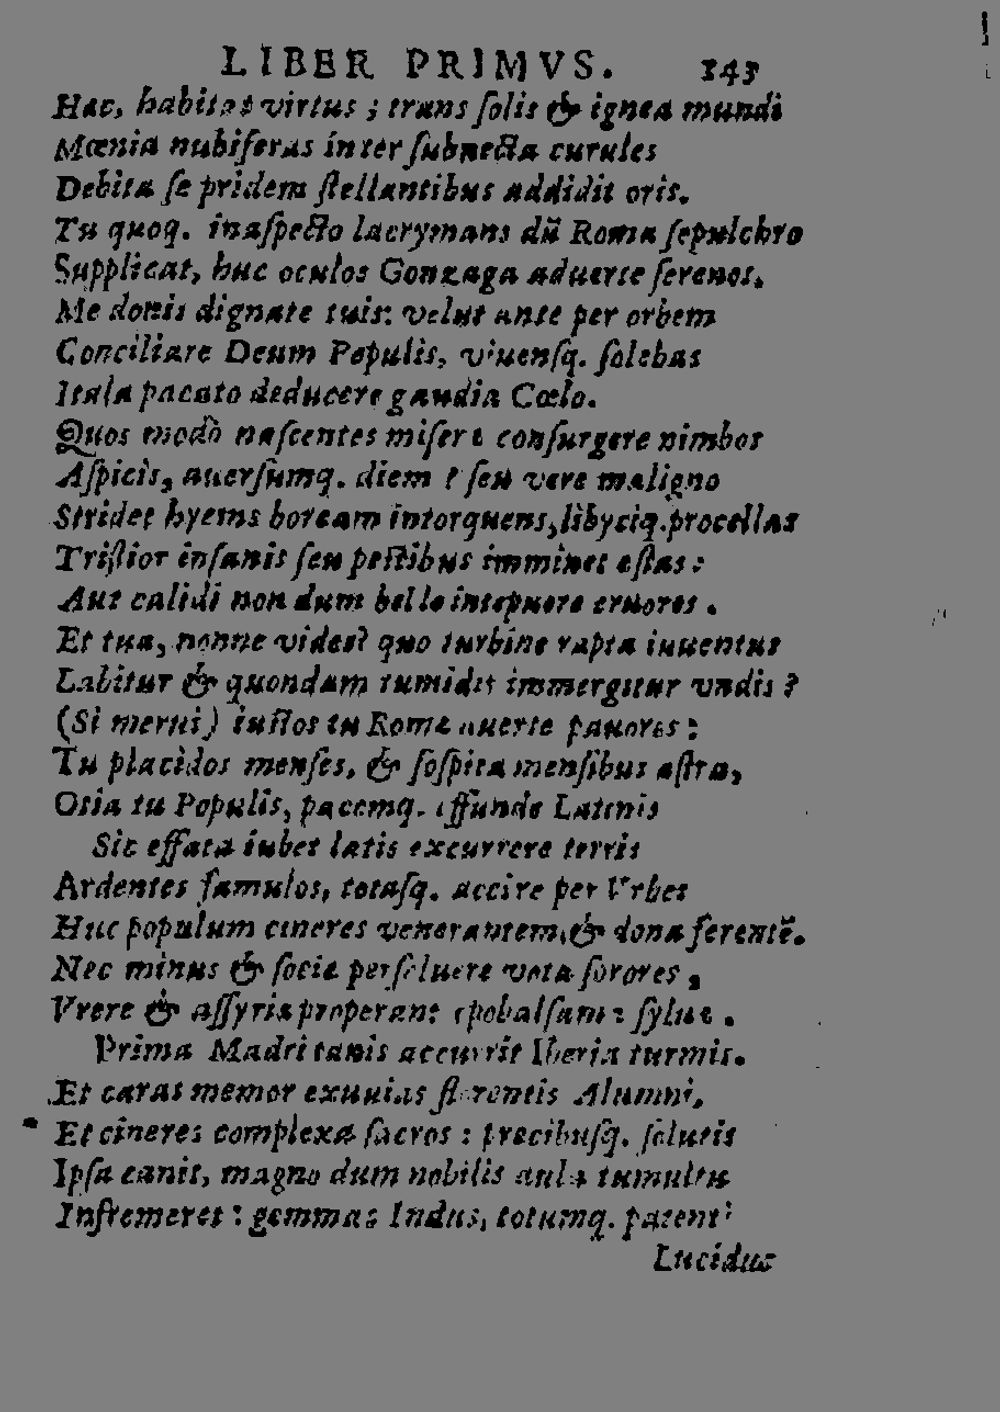 LIBER PRIMVS. 143
Hac, habitas virtus; trans ſolis & ignea mundi
Mœnia nubiferas inter ſubnecta curules
Debita ſe pridem ſtellantibus addidit oris.
Tu quoq. inaſpecto lacrymans dũ Roma ſepulchro
Supplicat, huc oculos Gonzaga aduerte ſerenos.
Me donis dignate tuis: velut ante per orbem
Conciliare Deum Populis, viuenſq. ſolebas
Itala pacato deducere gaudia Cœlo.
Quos modò naſcentes miſeri conſurgere nimbos
Aſpicis, auerſumq. diem? ſeu vere maligno
Stridet hyems boream intorquens, libyciq. procellas
Triſtior inſanis ſeu peſtibus imminet eſtas:
Aut calidi non dum bello intepuere cruores.
Et tua, nonne vides? quo turbine rapta iuuentus
Labitur & quondam tumidis immergitur vndis?
(Si merui) iuſtos tu Romæ auerte pauores:
Tu placidos menſes, & ſoſpita menſibus aſtra,
Otia tu Populis, pacemq. effunde Latinis
Sic effata iubet latis excurrere terris
Ardentes famulos, totaſq. accire per Vrbes
Huc populum cineres venerantem, & dona ferentẽ.
Nec minus & ſociæ perſoluere vota ſorores,
Vrere & aſſyriæ properant opobalſama ſyluæ.
Prima Madritanis accurrit Iberia turmis.
Et caras memor exuuias florentis Alumni,
Et cineres complexa ſacros: precibuſq. ſolutis
Ipſa canit, magno dum nobilis aula tumultu
Infremeret: gemmas Indus, totumq. patenti
Lucidus